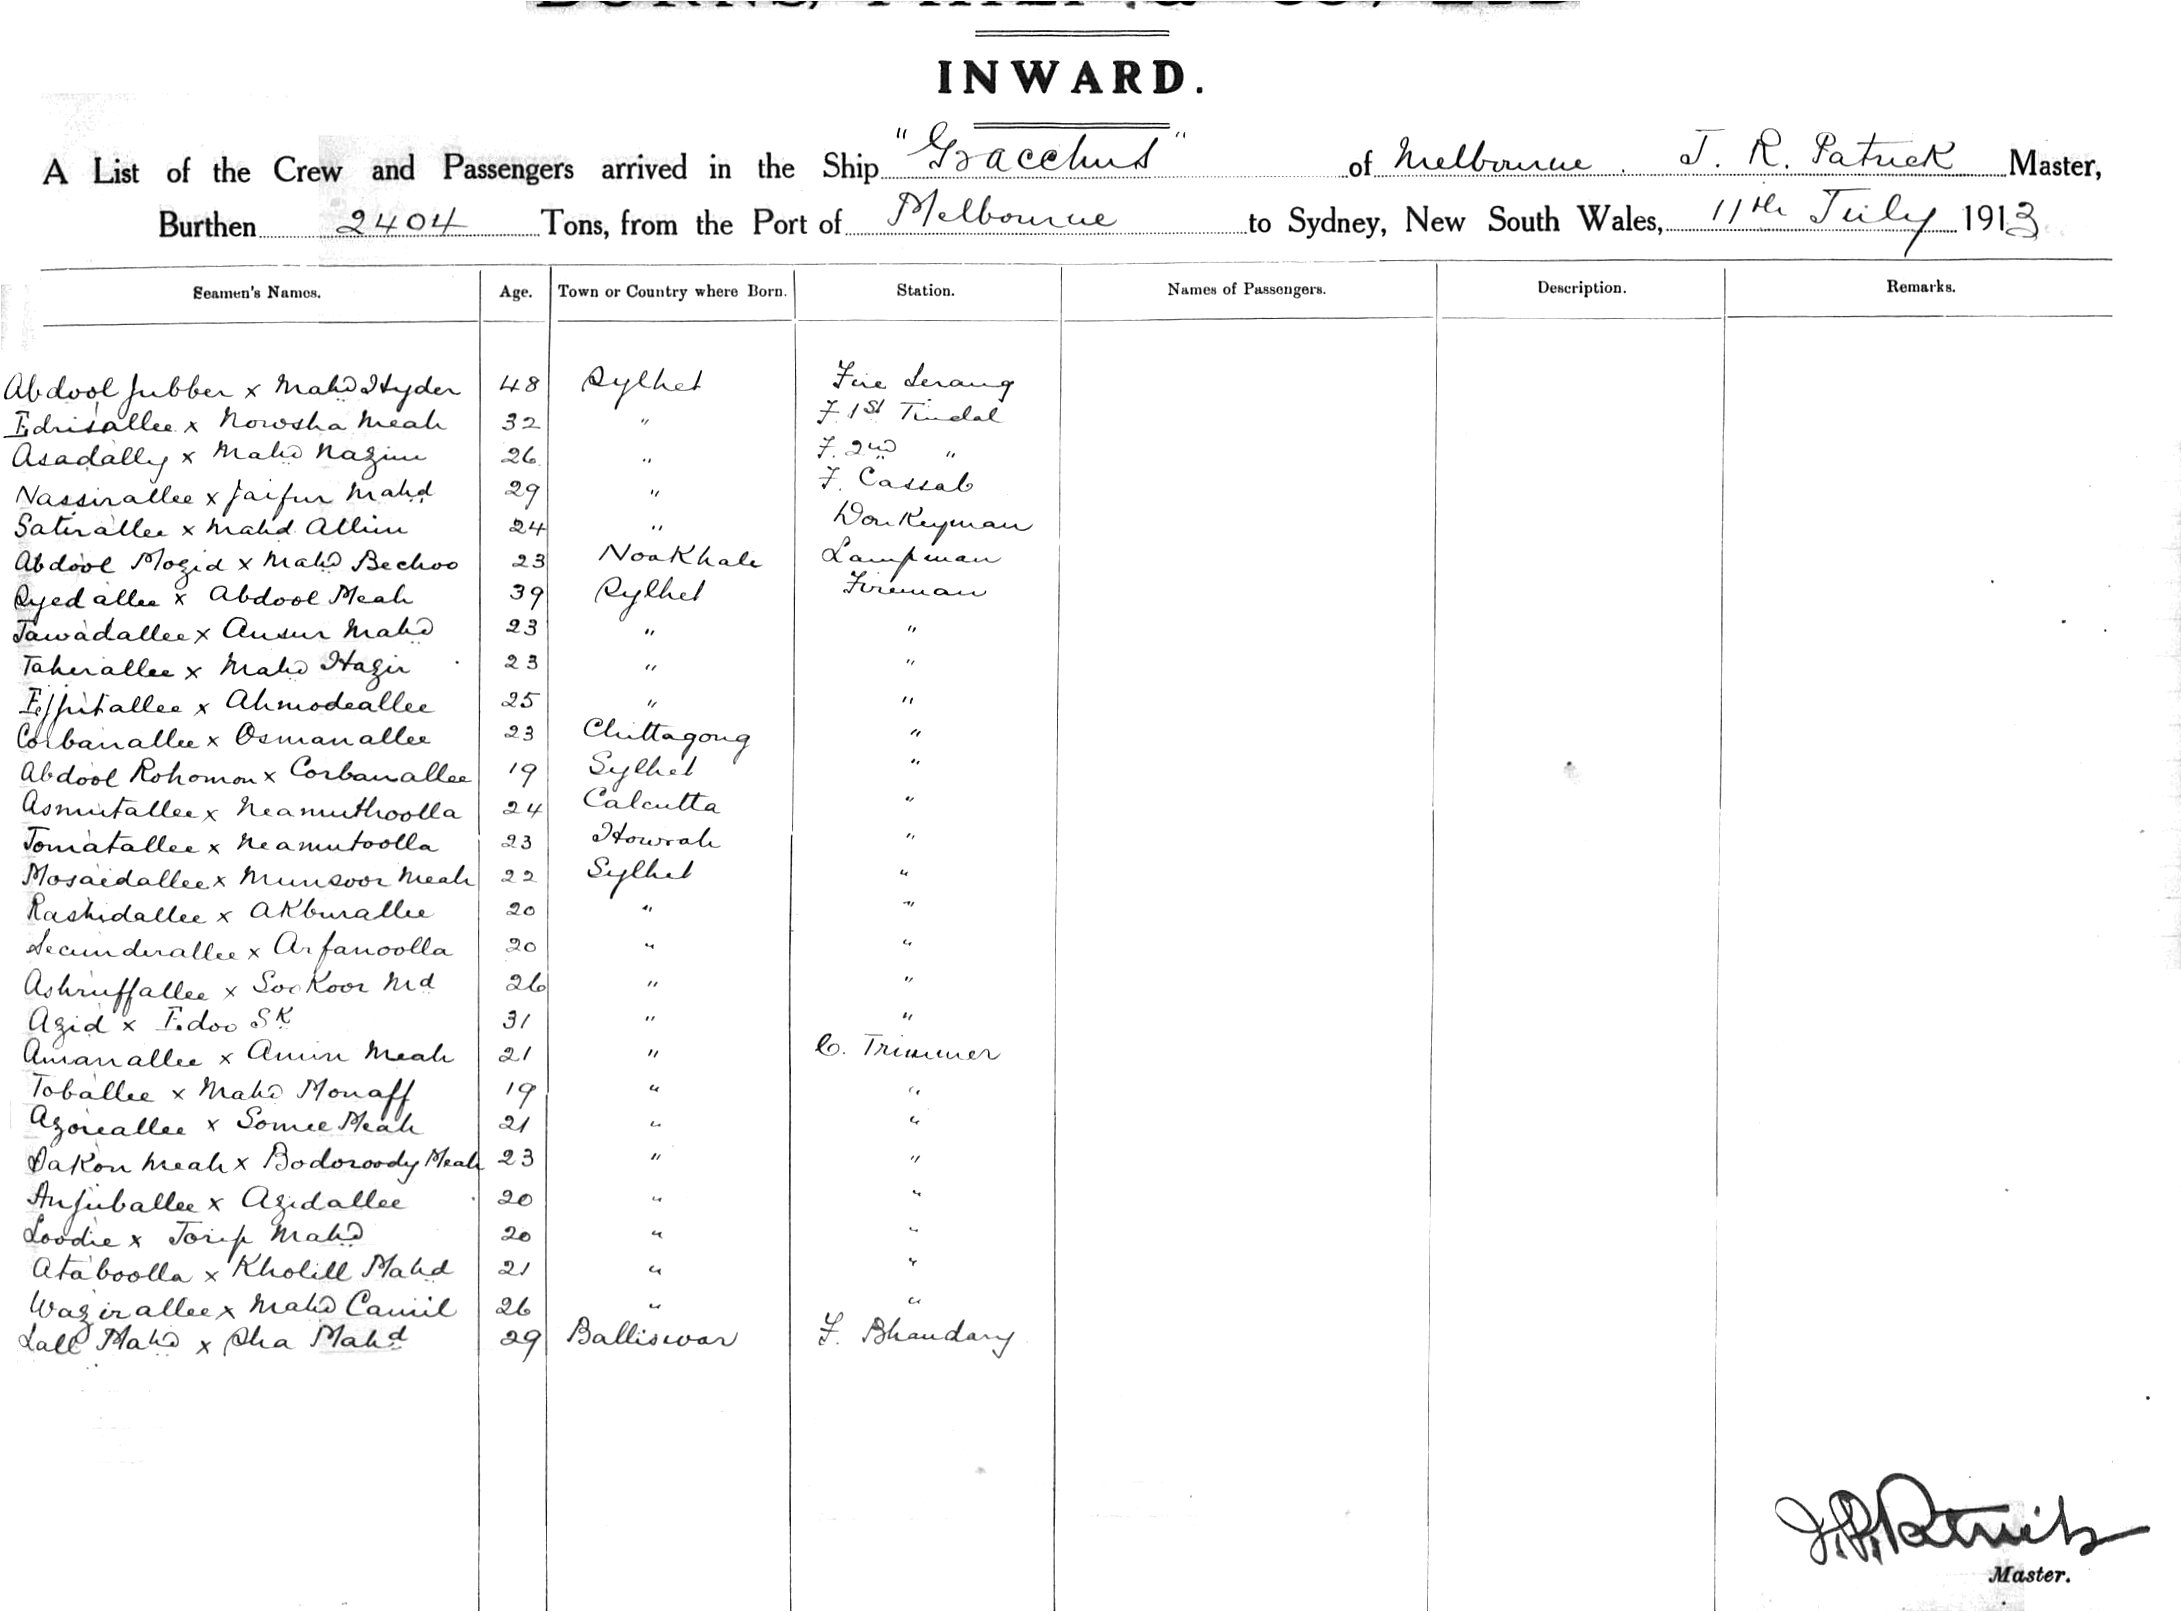 BURNS, PHILP & CO., LTD
INWARD.
A List of the Crew and Passengers arrived in the Ship "Gracchus" of Melbourne. J. R. Patrick Master,
Burthen 2404 Tons, from the Port of Melbourne to Sydney, New South Wales, 11th July 1913
Seamen's Names. Age. Town or Country where Born. Station. Names of Passengers. Description. Remarks.
Abdool Jubber x Mahd Hyder 48 Sylhet Fire Serang
Edrisallee x Nowsha Meah 32 " F. 1st Tindal
Asadally x Mahd Nazim 26 " F. 2nd "
Nassirallee x Jaifur Mahd 29 " F. Cassab
Satirallee x Mahd Allim 24 " Donkeyman
Abdool Mozid x Mahd Bechoo 23 NoaKhale Lampman
Syedallee x Abdool Meah 39 Sylhet Fireman
Tawadallee x Ansur Mahd 23 " "
Taherallee x Mahd Hazir 23 " "
Effitallee x Ahmodeallee 25 " "
Corbanallee x Osmanallee 23 Chittagong "
Abdool Rohomon x Corbanallee 19 Sylhet "
Asmutallee x Neamuthoolla 24 Calcutta "
Tomatallee x Neamutoolla 23 Howrah "
Mosaidallee x Munsoor Meah 22 Sylhet "
Rashidallee x Akburallee 20 " "
Secunderallee x Arfanoolla 20 " "
Ashruffallee x Sookoor Md 26 " "
Azid x Edoo Sk 31 " "
Amanallee x Amin Meah 21 " C. Trimmer
Toballee x Mahd Monaff 19 " "
Azoreallee x Somee Meah 21 " "
Dakon Meah x Bodoroody Meah 23 " "
Anjuballee x Azidallee 20 " "
Loodie x Torip Mahd 20 " "
Ataboolla x Kholill Mahd 21 " "
Wazirallee x Mahd Camil 26 " "
Lall Mahd x Sha Mahd 29 Balliswar F. Bhandary
J. R. Patrick
Master.